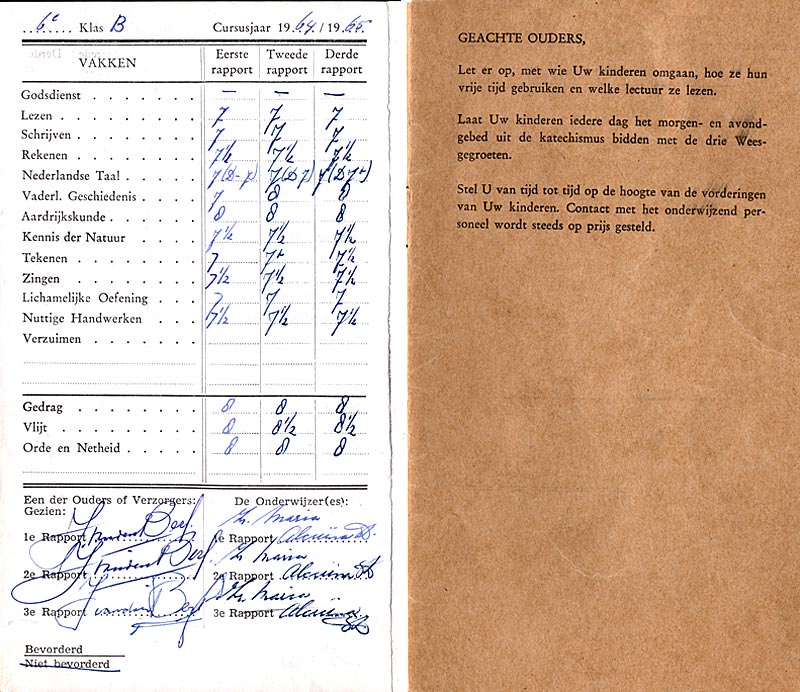 6e Klas B Cursusjaar 1964/1965
VAKKEN Eerste rapport Tweede rapport Derde rapport
Godsdienst — — —
Lezen 7 7 7
Schrijven 7 7 7
Rekenen 7½ 7½ 7½
Nederlandse Taal 7 (D-7) 7 (D7) 7 (D7+)
Vaderl. Geschiedenis 7 8 8
Aardrijkskunde 8 8 8
Kennis der Natuur 7½ 7½ 7½
Tekenen 7 7+ 7½
Zingen 7½ 7½ 7½
Lichamelijke Oefening 7 7 7
Nuttige Handwerken 7½ 7½ 7½
Verzuimen
Gedrag 8 8 8
Vlijt 8 8½ 8½
Orde en Netheid 8 8 8
Een der Ouders of Verzorgers: De Onderwijzer(es):
Gezien: Zr. Maria
1e Rapport 1e Rapport
Zr. Maria
2e Rapport 2e Rapport
Zr. Maria
3e Rapport 3e Rapport
Bevorderd
Niet bevorderd
GEACHTE OUDERS,
Let er op, met wie Uw kinderen omgaan, hoe ze hun
vrije tijd gebruiken en welke lectuur ze lezen.
Laat Uw kinderen iedere dag het morgen- en avond-
gebed uit de katechismus bidden met de drie Wees-
gegroeten.
Stel U van tijd tot tijd op de hoogte van de vorderingen
van Uw kinderen. Contact met het onderwijzend per-
soneel wordt steeds op prijs gesteld.